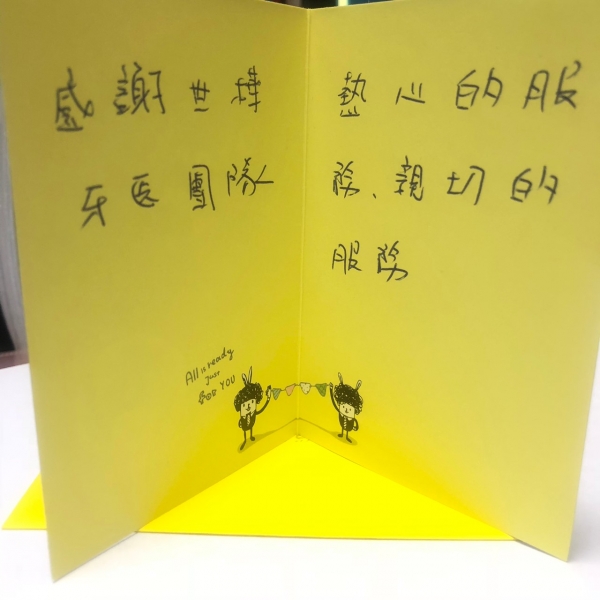 感謝世樺
牙医團隊
熱心的服
務、親切的
服務
All is ready
Just
YOU